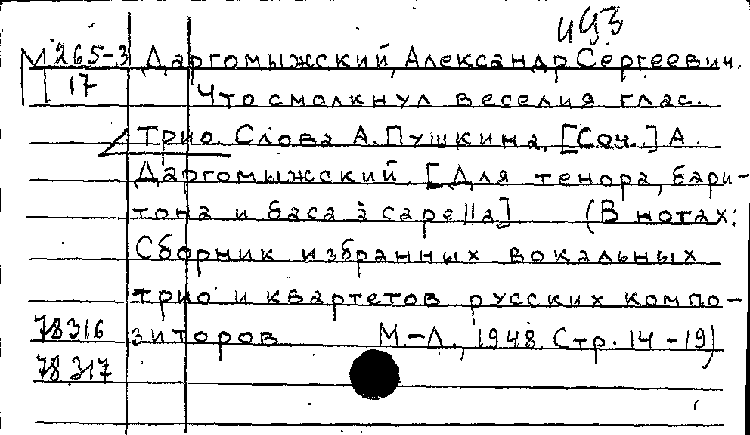 493
М 265-3 Даргомыжский, Александр Сергеевич.
17 Что смолкнул веселия глас.
Трио. Слова А. Пушкина, [Соч.] А.
Даргомыжский. [Для тенора, бари-
тона и баса à capella] (В нотах:
Сборник избранных вокальных
трио и квартетов русских компо-
78316 зиторов М.-Л., 1948. Стр. 14-19)
78317